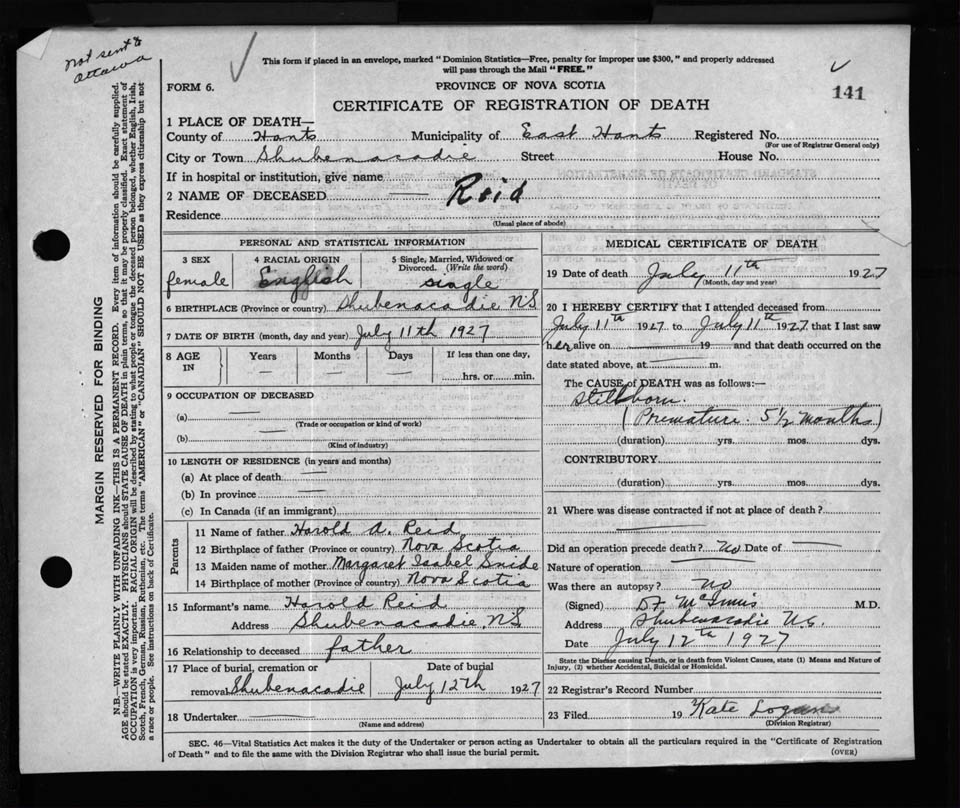 not sent to
Ottawa
This form if placed in an envelope, marked "Dominion Statistics—Free, penalty for improper use $300," and properly addressed
will pass through the Mail "FREE."
FORM 6.
PROVINCE OF NOVA SCOTIA
141
CERTIFICATE OF REGISTRATION OF DEATH
1 PLACE OF DEATH—
County of Hants Municipality of East Hants Registered No.
(For use of Registrar General only)
City or Town Shubenacadie Street House No.
If in hospital or institution, give name
2 NAME OF DECEASED — Reid
Residence
(Usual place of abode)
PERSONAL AND STATISTICAL INFORMATION
3 SEX 4 RACIAL ORIGIN 5 Single, Married, Widowed or
Divorced. (Write the word)
female English single
6 BIRTHPLACE (Province or country) Shubenacadie NS
7 DATE OF BIRTH (month, day and year) July 11th 1927
8 AGE IN Years Months Days If less than one day,
— — — hrs. or min.
9 OCCUPATION OF DECEASED
(a) —
(Trade or occupation or kind of work)
(b) —
(Kind of industry)
10 LENGTH OF RESIDENCE (in years and months)
(a) At place of death —
(b) In province —
(c) In Canada (if an immigrant)
Parents
11 Name of father Harold A. Reid
12 Birthplace of father (Province or country) Nova Scotia
13 Maiden name of mother Margaret Isabel Snide
14 Birthplace of mother (Province or country) Nova Scotia
15 Informant's name Harold Reid
Address Shubenacadie, NS
16 Relationship to deceased father
17 Place of burial, cremation or Date of burial
removal Shubenacadie July 12th 1927
18 Undertaker —
(Name and address)
MEDICAL CERTIFICATE OF DEATH
19 Date of death July 11th 1927
(Month, day and year)
20 I HEREBY CERTIFY that I attended deceased from
July 11th 1927 to July 11th 1927 that I last saw
her alive on — 19 — and that death occurred on the
date stated above, at — m.
The CAUSE of DEATH was as follows:—
Stillborn.
(Premature 5½ months)
(duration) yrs. mos. dys.
CONTRIBUTORY
(duration) yrs. mos. dys.
21 Where was disease contracted if not at place of death?
—
Did an operation precede death? No Date of —
Nature of operation —
Was there an autopsy? No
(Signed) D F McInnis M.D.
Address Shubenacadie N.S.
Date July 12th 1927
State the Disease causing Death, or in death from Violent Causes, state (1) Means and Nature of
Injury, (2) whether Accidental, Suicidal or Homicidal.
22 Registrar's Record Number
23 Filed 19 Kate Logan
(Division Registrar)
SEC. 46—Vital Statistics Act makes it the duty of the Undertaker or person acting as Undertaker to obtain all the particulars required in the "Certificate of Registration
of Death" and to file the same with the Division Registrar who shall issue the burial permit.
(OVER)
MARGIN RESERVED FOR BINDING
N.B.—WRITE PLAINLY WITH UNFADING INK—THIS IS A PERMANENT RECORD. Every item of information should be carefully supplied.
AGE should be stated EXACTLY. PHYSICIANS should STATE CAUSE OF DEATH in plain terms, so that it may be properly classified. Exact statement of
OCCUPATION is very important. RACIAL ORIGIN will be described by stating to what people or tongue the deceased person belonged, whether English, Irish,
Scotch, French, German, Russian, Ruthenian, etc. The terms "AMERICAN" or "CANADIAN" SHOULD NOT BE USED as they express citizenship but not
a race or people. See instructions on back of Certificate.